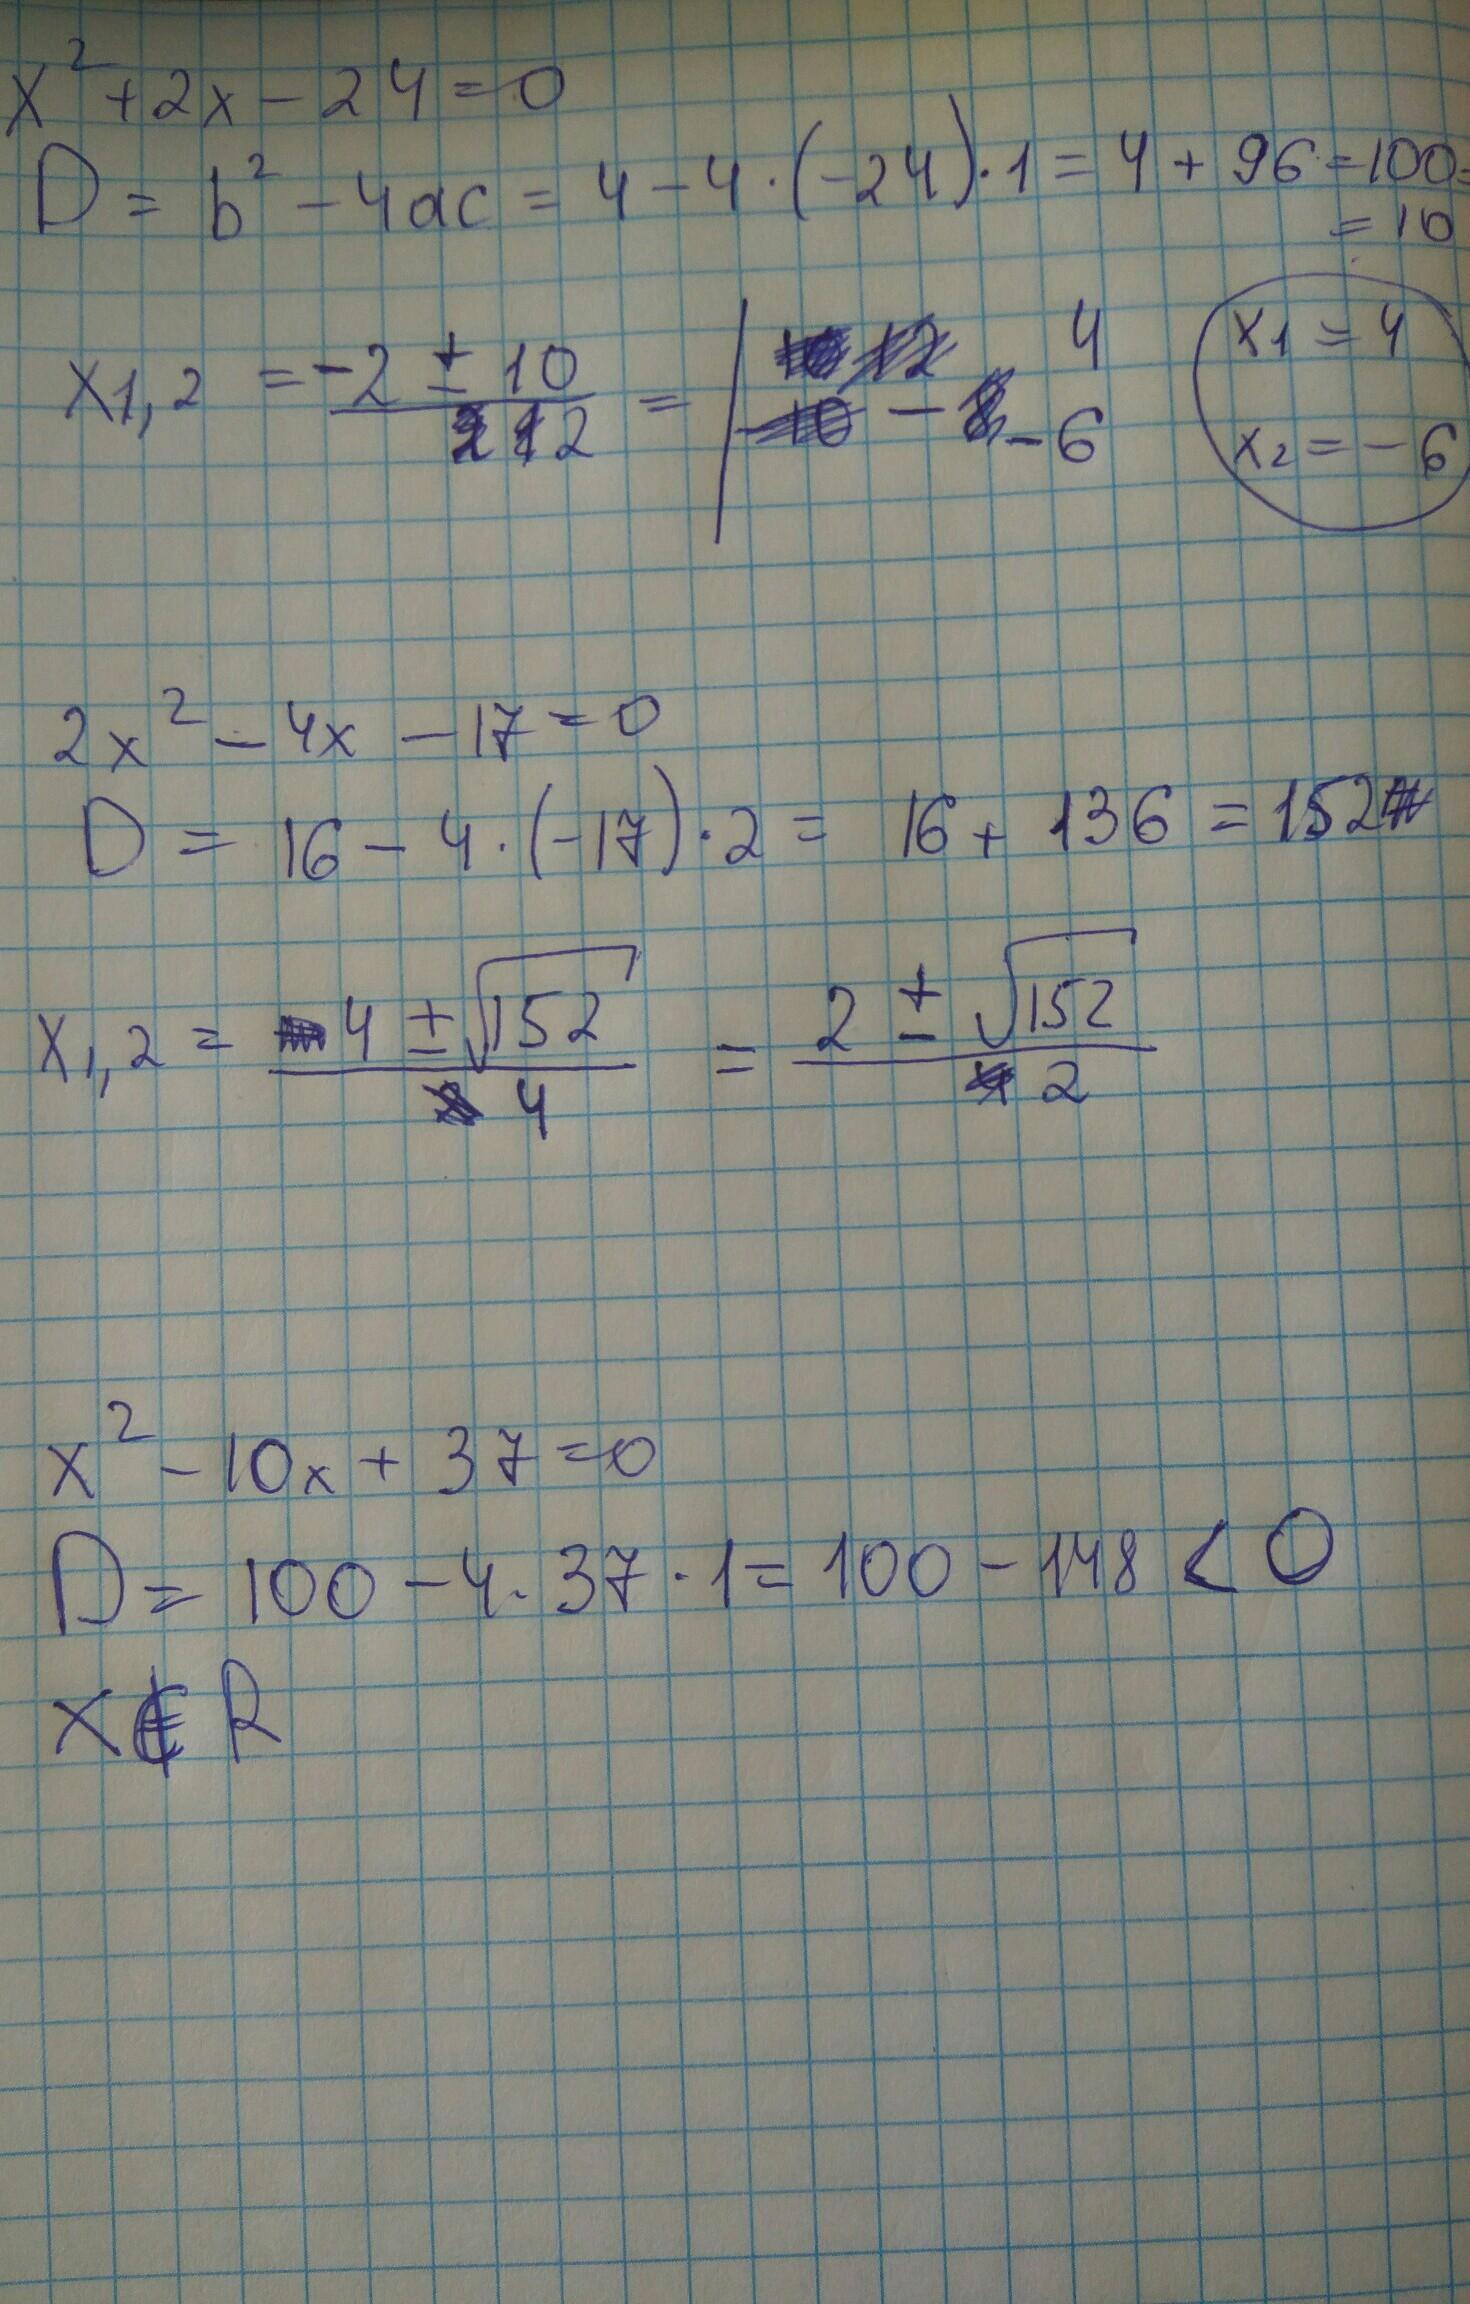 x² + 2x - 24 = 0
D = b² - 4ac = 4 - 4 · (-24) · 1 = 4 + 96 = 100 =
= 10
x1,2 = (-2 ± 10) / 2 = | 4
-6
x1 = 4
x2 = -6
2x² - 4x - 17 = 0
D = 16 - 4 · (-17) · 2 = 16 + 136 = 152
x1,2 = (4 ± √152) / 4 = (2 ± √152) / 2
x² - 10x + 37 = 0
D = 100 - 4 · 37 · 1 = 100 - 148 < 0
x ∉ R